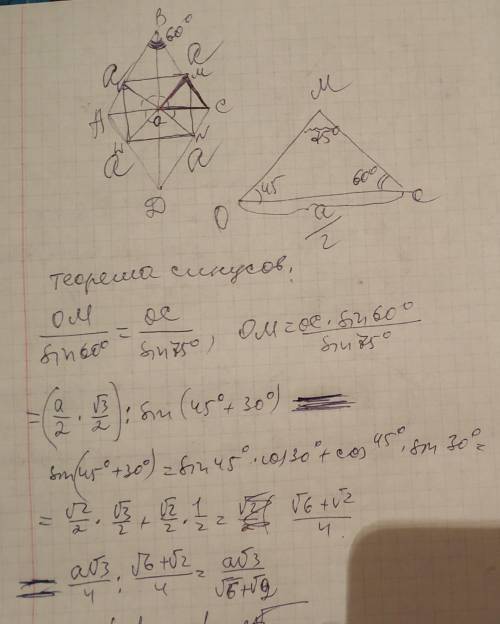 B
60°
a
a
M
A
O
C
W
N
a
a
D
M
75°
45
60°
O
C
a/2
теорема синусов.
OM/sin60° = OC/sin75°, OM = OC·sin60°/sin75°
= (a/2 · √3/2) : sin(45°+30°)
sin(45°+30°) = sin45°·cos30° + cos45°·sin30° =
= √2/2 · √3/2 + √2/2 · 1/2 = (√6+√2)/4
= a√3/4 : (√6+√2)/4 = a√3/(√6+√2)